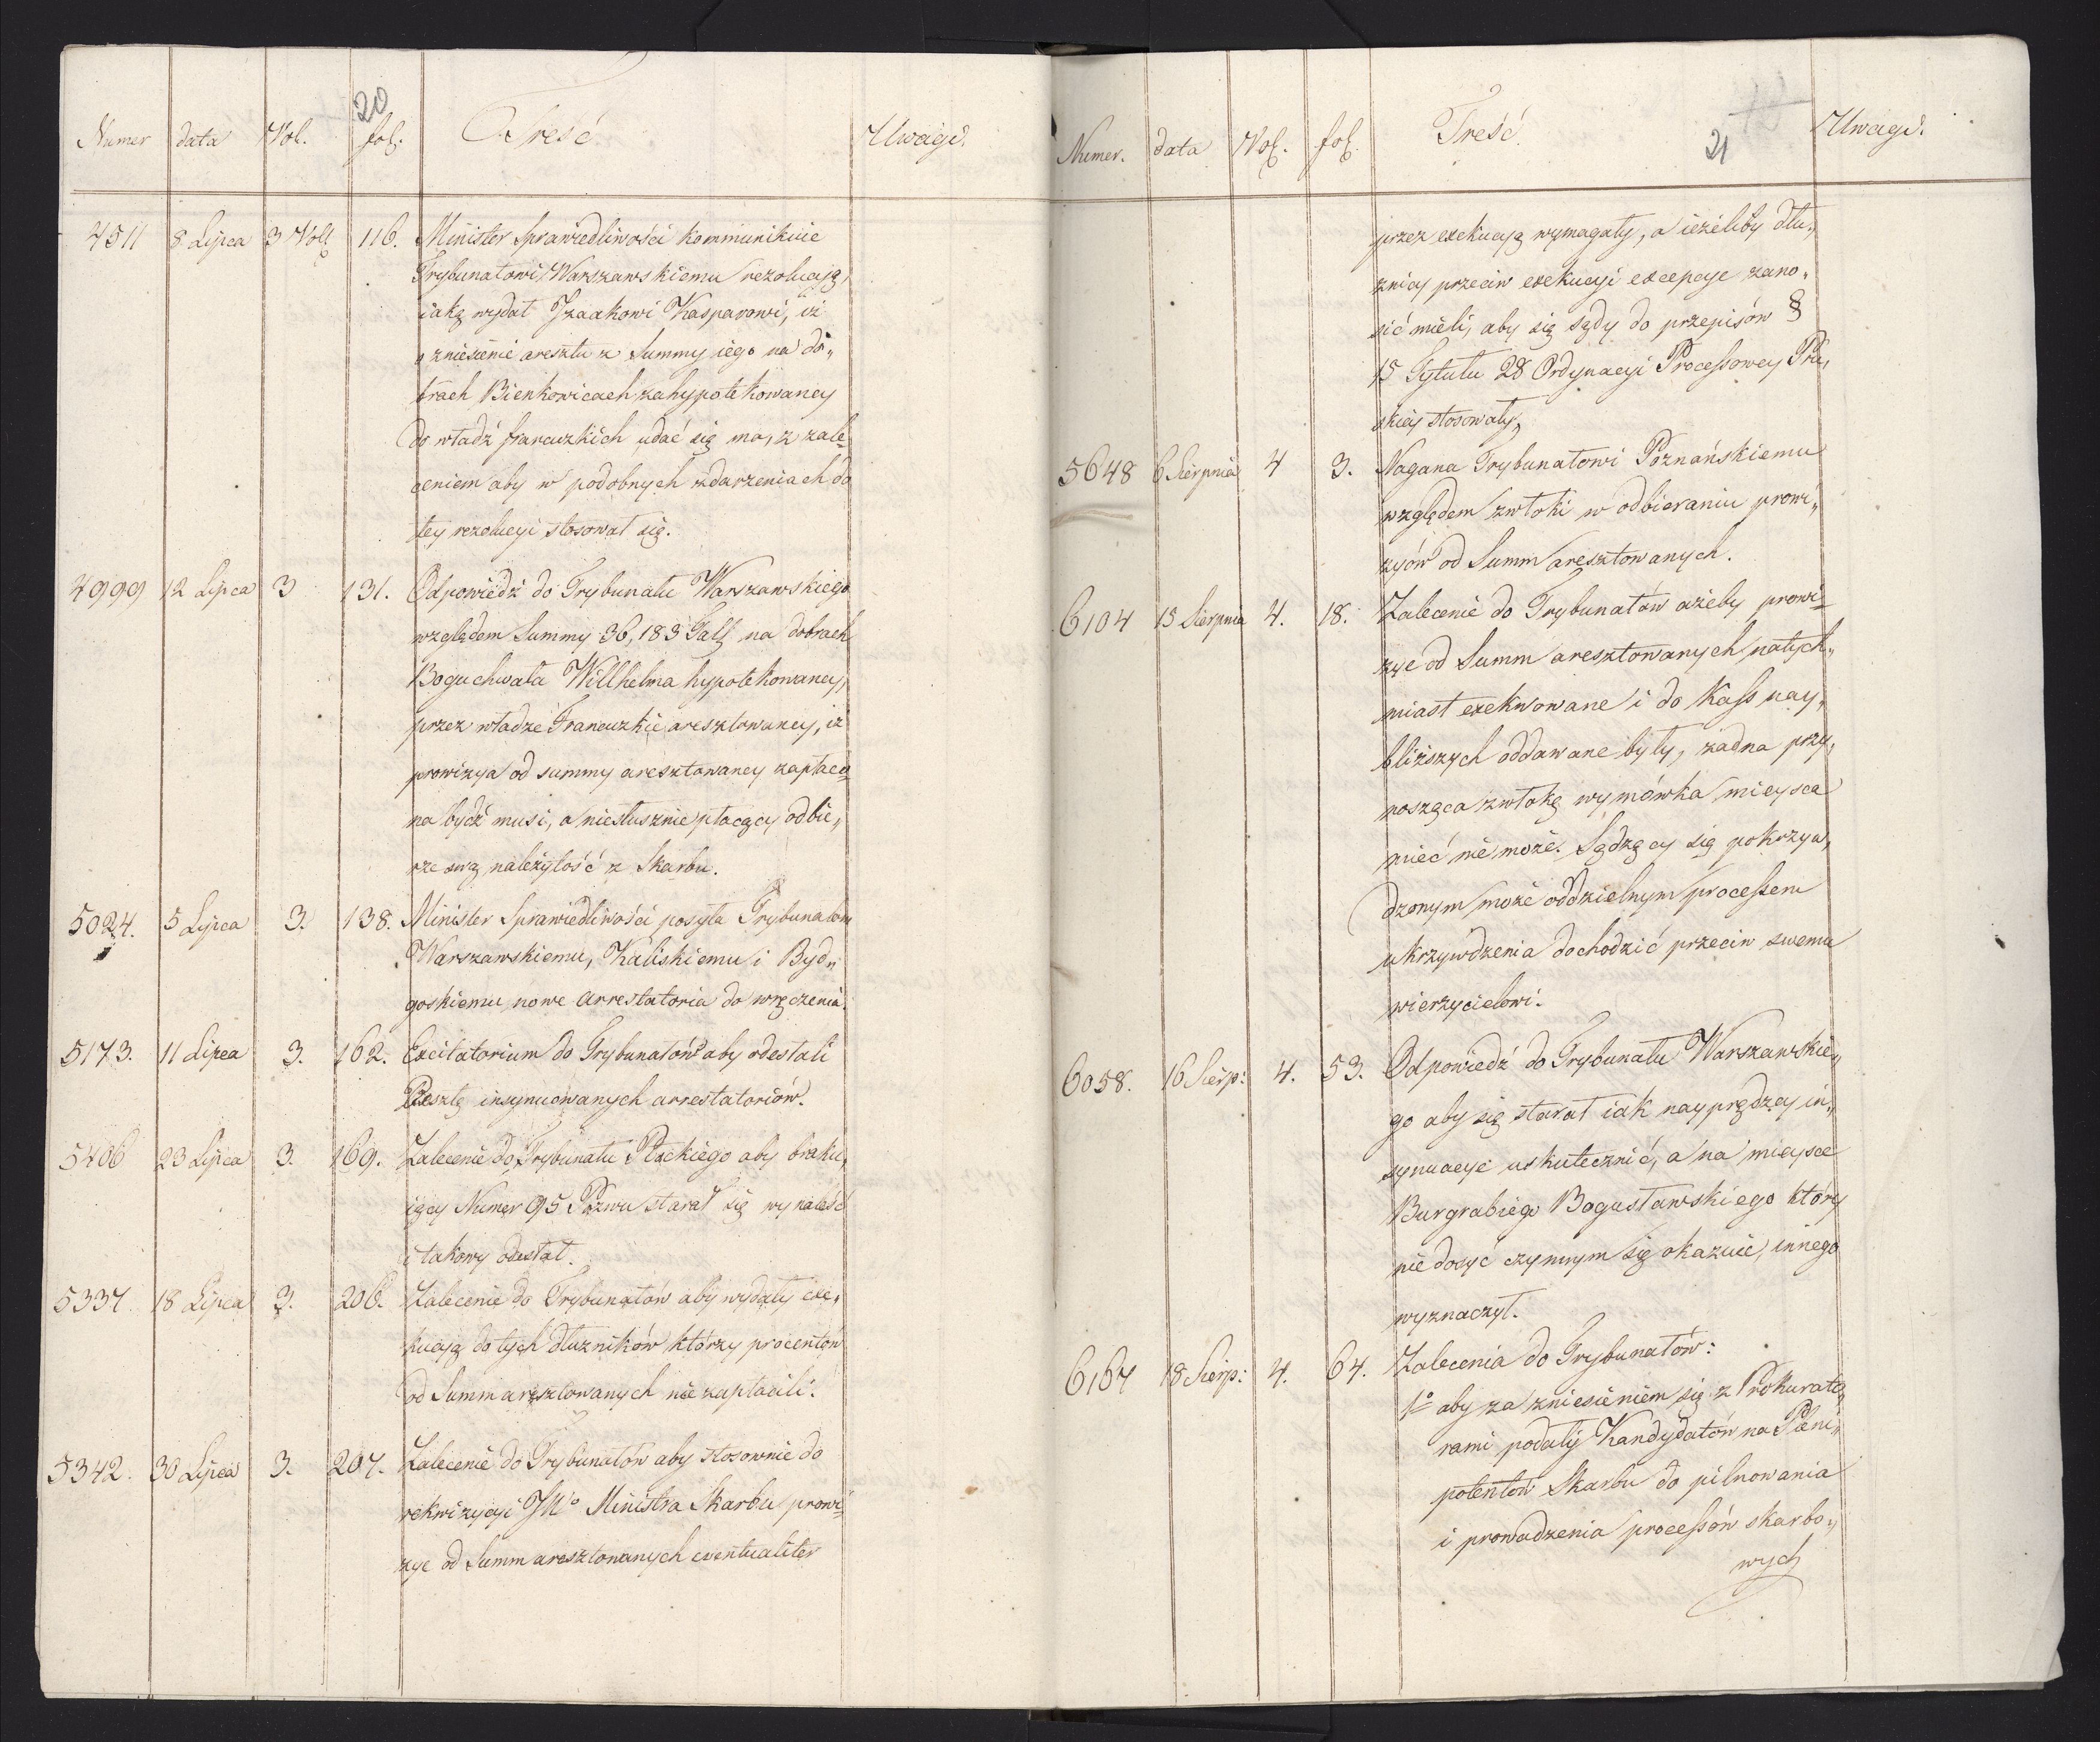 20
Numer data Vol. fol. Treść Uwagi.
4511 8 Lipca 3 Vol 116. Minister Sprawiedliwości kommunikuie
Trybunałowi Warszawskiemu rezolucyą,
iaką wydał Izaakowi Kasparowi, iż
o zniesienie aresztu z Summy iego na do„
brach Bienkowicach zahypotekowaney
do władź francuzkich udać się ma, z zale„
ceniem aby w podobnych zdarzeniach do
tey rezolucyi stosował się.
4999 12 Lipca 3 131. Odpowiedź do Trybunału Warszawskiego
względem Summy 36,183 Tall na dobrach
Boguchwała Willhelma hypotekowaney,
przez władze Francuzkie aresztowaney, iż
prowizya od summy aresztowaney zapłaco„
na bydź musi, a niesłusznie płacący odbie„
rze swą należytość z Skarbu.
5024. 5 Lipca 3. 138. Minister Sprawiedliwości posyła Trybunałom
Warszawskiemu, Kaliskiemu i Byd„
goskiemu nowe Arrestatoria do wręczenia.
5173. 11 Lipca 3. 162. Excitatorium do Trybunałów aby odesłali
Resztę insynuowanych arrestatoriów.
5406 23 Lipca 3. 169. Zalecenie do Trybunału Płockiego aby braku„
iący Numer 95 Pozwu starał się wynaleść
i takowy odesłał.
5337. 18 Lipca 3. 206. Zalecenie do Trybunałów aby wydały exe„
kucyą do tych dłużników którzy procentów
od Summ aresztowanych nie zapłacili.
5342. 30 Lipca 3. 207. Zalecenie do Trybunałów aby stosownie do
rekwizycyi JWo Ministra Skarbu prowi„
zye od Summ aresztowanych eventualiter
Numer. data Vol. fol. Treść. 21 Uwagi.
przez exekucyą wymagały, a ieżeliby dłu„
żnicy przeciw exekucyi excepcye zano„
sić mieli, aby się sądy do przepisów §
15 Tytułu 28 Ordynacyi Processowey Pru„
skiey stosowały.
5648 6 Sierpnia 4 3. Nagana Trybunałowi Poznańskiemu
względem zwłoki w odbieraniu prowi„
zyów od Summ aresztowanych.
6104 15 Sierpnia 4. 18. Zalecenie do Trybunałów ażeby prowi„
zye od Summ aresztowanych natych„
miast exekwowane i do Kass nay„
bliższych oddawane były, żadna przy„
nosząca zwłokę wymówka mieysca
mieć nie może. Sądzący się pokrzyw„
dzonym może oddzielnym processem
ukrzywdzenia dochodzić przeciw swemu
wierzycielowi.
6058. 16 Sierp: 4. 53. Odpowiedź do Trybunału Warszawskie„
go aby się starał iak nayprędzey in„
synuacye uskutecznić, a na mieysce
Burgrabiego Bogusławskiego który
nie dosyć czynnym się okazuie, innego
wyznaczył.
6167 18 Sierp: 4. 64. Zalecenia do Trybunałów:
1o aby za zniesieniem się z Prokurato„
rami podały Kandydatów na Pleni„
potentów Skarbu do pilnowania
i prowadzenia processów skarbo„
wych